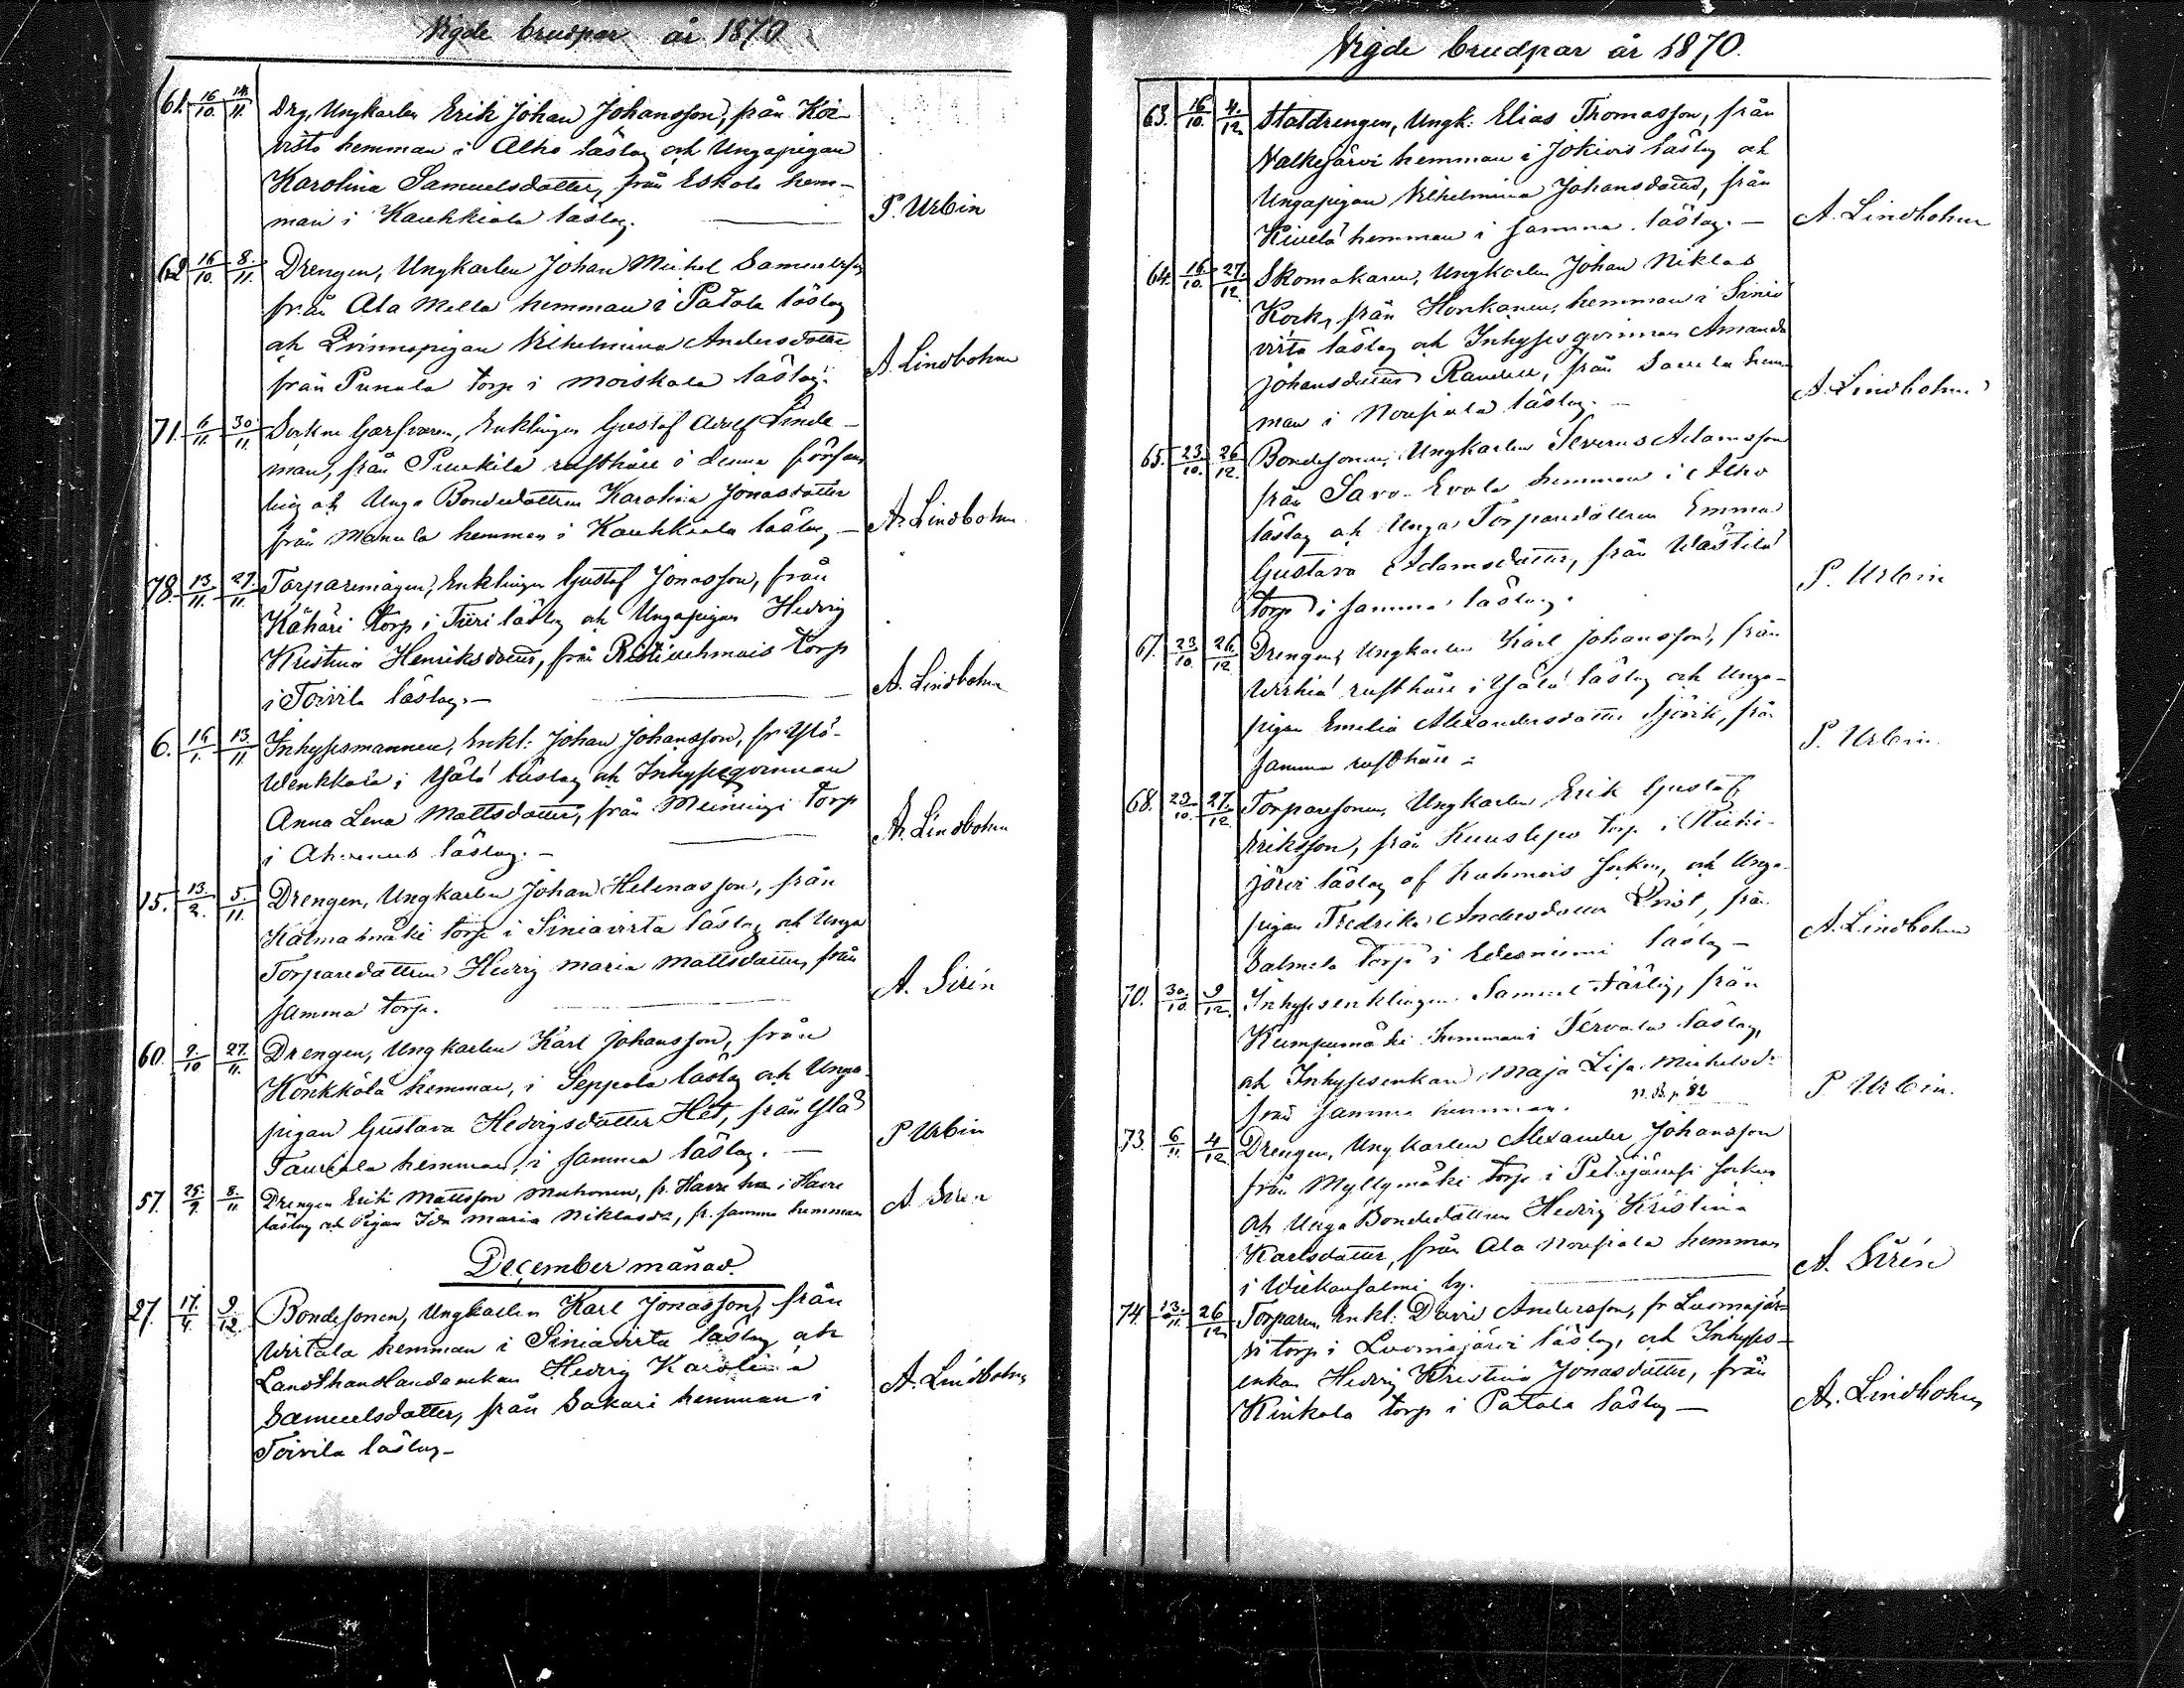 Vigde brudpar år 1870
61. 16/10. 14/11. Drg, Ungkarlen Erik Johan Johansson, från Koi-
visto hemman i Alho läslag och Ungapigan
Karolina Samuelsdotter, från Eskola hem-
man i Kaukkiala läslag. — P. Urbin
62 16/10. 8./11. Drengen, Ungkarlen Johan Michel Samuelsson
från Ala Mella hemman i Patala läslag
och Qvinnspigan Vilhelmina Andersdotter
från Punala torp i Moiskala läslag. A. Lindbohm
71. 6/11. 30/11. Sockne Garfvaren, Enklingen Gustaf Adolf Linde-
man, från Puukila rusthåll i denna församl
ling och Unga Bondedottren Karolina Jonasdotter
från Manula hemman i Kaukkiala läslag — A. Lindbohm
78. 13./11. 27./11. Torparemågen, Enklingen Gustaf Jonasson, från
Kähäri torp i Tiiri läslag och Ungapigan Hedvig
Kristina Henriksdotter, från torp
i Toivila läslag. — A. Lindbohm
6. 16/1. 13./11 Inhyssmannen, Enkl: Johan Johansson, fr Ylö-
Wenkkala i Yälö läslag och Inhyssqvinnan
Anna Lena Mattsdotter, från Meiningi torp
i läslag. — A. Lindbohm
15. 13./2. 5./11. Drengen, Ungkarlen Johan Helenasson, från
Kalmahmäki torp i Siniavirta läslag och Unga
Torparedottren Hedvig Maria Mattsdotter, från
samma torp. A. Sirén
60. 9./10 27./11. Drengen, Ungkarlen Karl Johansson, från
Könkkölä hemman, i Seppola läslag och Unga-
pigan Gustava Hedvigsdotter Het, från Ylä
Tauriala hemman, i samma läslag. — P Urbin
57. 25./9. 8./11 Drengen Erik Mattsson Muhonen, fr. Harre hn i Harre
läslag och Pigan Ida Maria Niklasdr, fr. samma hemman A Siren
December månad.
27. 17./4. 9/12. Bondesonen, Ungkarlen Karl Jonasson, från
Wirtala hemman i Siniavirta läslag och
Landthandlandaenkan Hedvig Karolina
Samuelsdotter, från Sakari hemman i A. Lindbohm
Toivila läslag —
Vigde brudpar år 1870.
63. 16/10. 4./12 Statdrengen, Ungk: Elias Thomasson, från
Valkejärvi hemman i Jokiois läslag och
Ungapigan Vilhelmina Johansdotter, från
Kivelä hemman i samma läslag. — A. Lindbohm
64. 16/10. 27./12. Skomakaren, Ungkarlen Johan Niklas
Kock, från Honkanen, hemman i Sinia
virta läslag och Inhyssqvinnan Amanda
Johansdotter Randell, från Saarela hem
man i Noupiala läslag. — A. Lindbohm
65. 23./10. 26/12. Bondesonen, Ungkarlen Severus Adamsson
från Savo-Erola hemman i Alho
läslag och Unga Torparedottren Emma
Gustava Adamsdotter, från Wästilä
torp i samma läslag. P. Urbin
67. 23/10. 26./12 Drengen, Ungkarlen Karl Johansson, från
Wirhiä rusthåll i Yälö läslag och Unga-
pigan Emelia Alexandersdotter Sjövik, från
samma rusthåll — P. Urbin
68. 23./10. 27./12. Torparesonen, Ungkarlen Erik Gustaf
Eriksson, från Kuuslepo torp i
järvi läslag af Kuhmois Socken, och Unga-
pigan Fredrika Andersdotter Qvist, från
Salmela torp i Edesniemi läslag — A. Lindbohm
70. 30./10. 9/12. Inhyssenklingen Samuel Färlig, från
Kumpumäki hemman i Tervala läslag,
och Inhyssenkan Maja Lisa Michelsdr
från samma hemman. n. B. p 82 P Urbin.
73. 6/11. 4/12. Drengen, Ungkarlen Alexander Johansson
från Myllymäki torp i Petäjävesi socken
och Unga Bondedottren Hedvig Kristina
Karlsdotter, från Ala Noupiala hemman
i Wiekansalmi by. A. Sirén
74. 13./11. 26/12 Torparen Enkl: David Andersson, fr Luomajär-
vi torp i Luomajärvi läslag, och Inhyss-
enkan Hedvig Kristina Jonasdotter, från
Kinkala torp i Patala läslag — A. Lindbohm